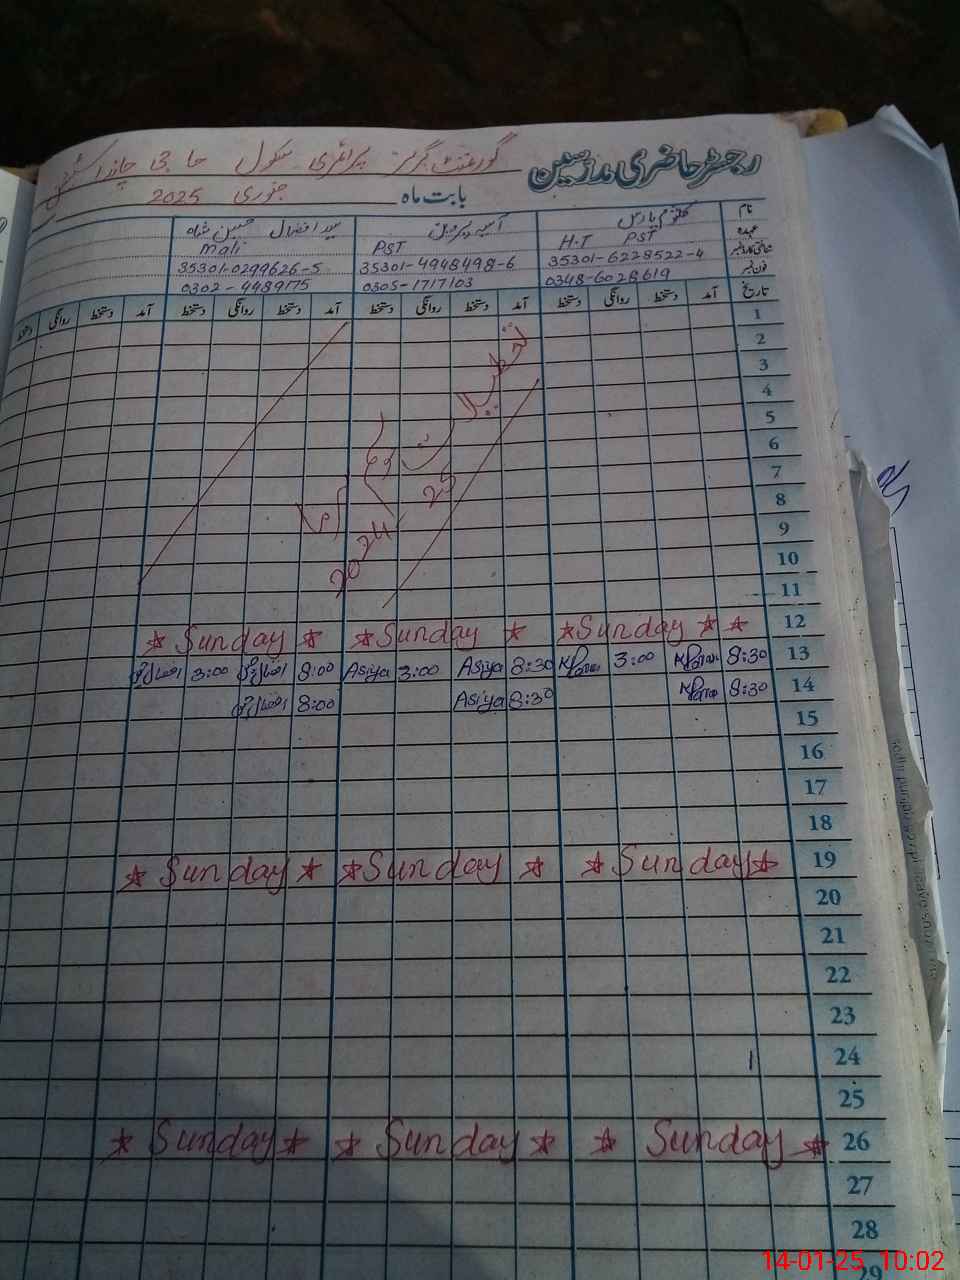 رجسٹر حاضری مدرسین گورنمنٹ گرلز پرائمری سکول حاجی چاند
بابت ماہ جنوری 2025
نام کلثوم پارس آسیہ پروین سید افضال حسین شاہ
عہدہ H.T PST PST mali
شناختی کارڈ نمبر 35301-6228522-4 35301-4948498-6 35301-0299626-5
فون نمبر 0348-6028619 0305-1717103 0302-4489175
تاریخ آمد دستخط روانگی دستخط آمد دستخط روانگی دستخط آمد دستخط روانگی دستخط آمد دستخط روانگی دستخط
1
2
3
4
5
6
7
8
9
10
11
تعطیلات موسم سرما
2024 25
12 Sunday Sunday Sunday
13 8:30 3:00 8:30 Asiya 3:00 Asiya 8:00 افضال 3:00 افضال
14 8:30 8:30 Asiya 8:00 افضال
15
16
17
18
19 Sunday Sunday Sunday
20
21
22
23
24
25
26 Sunday Sunday Sunday
27
28
29
14-01-25 10:02